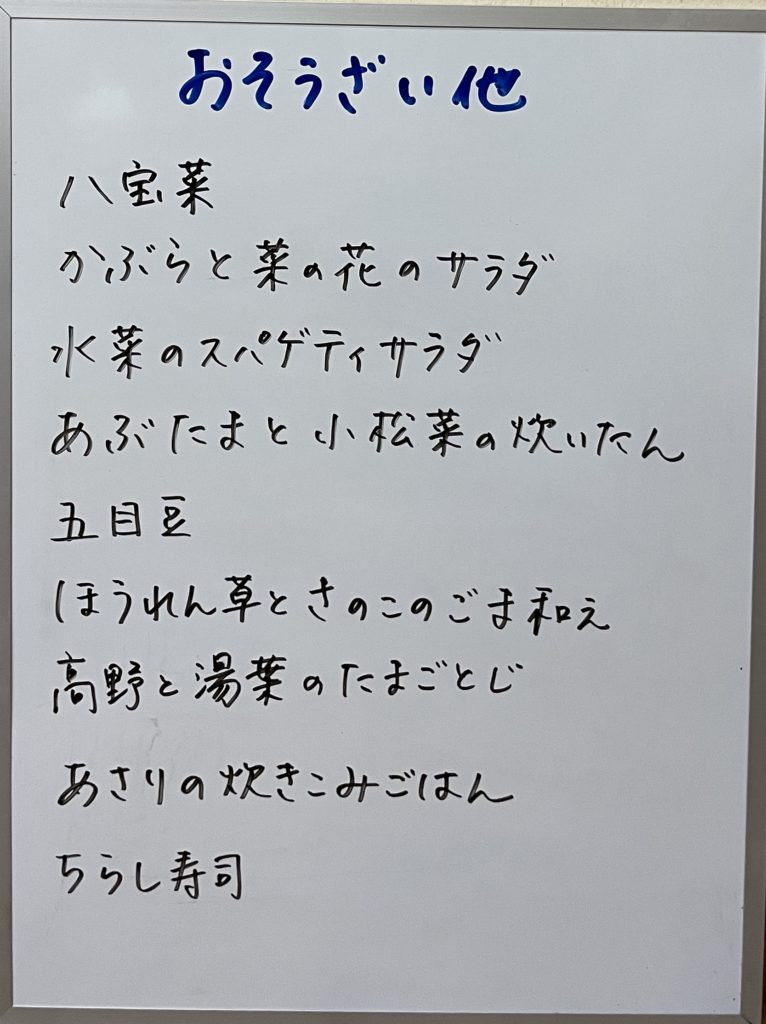 おそうざい他
八宝菜
かぶらと菜の花のサラダ
水菜のスパゲティサラダ
あぶたまと小松菜の炊いたん
五目豆
ほうれん草ときのこのごま和え
高野と湯葉のたまごとじ
あさりの炊きこみごはん
ちらし寿司